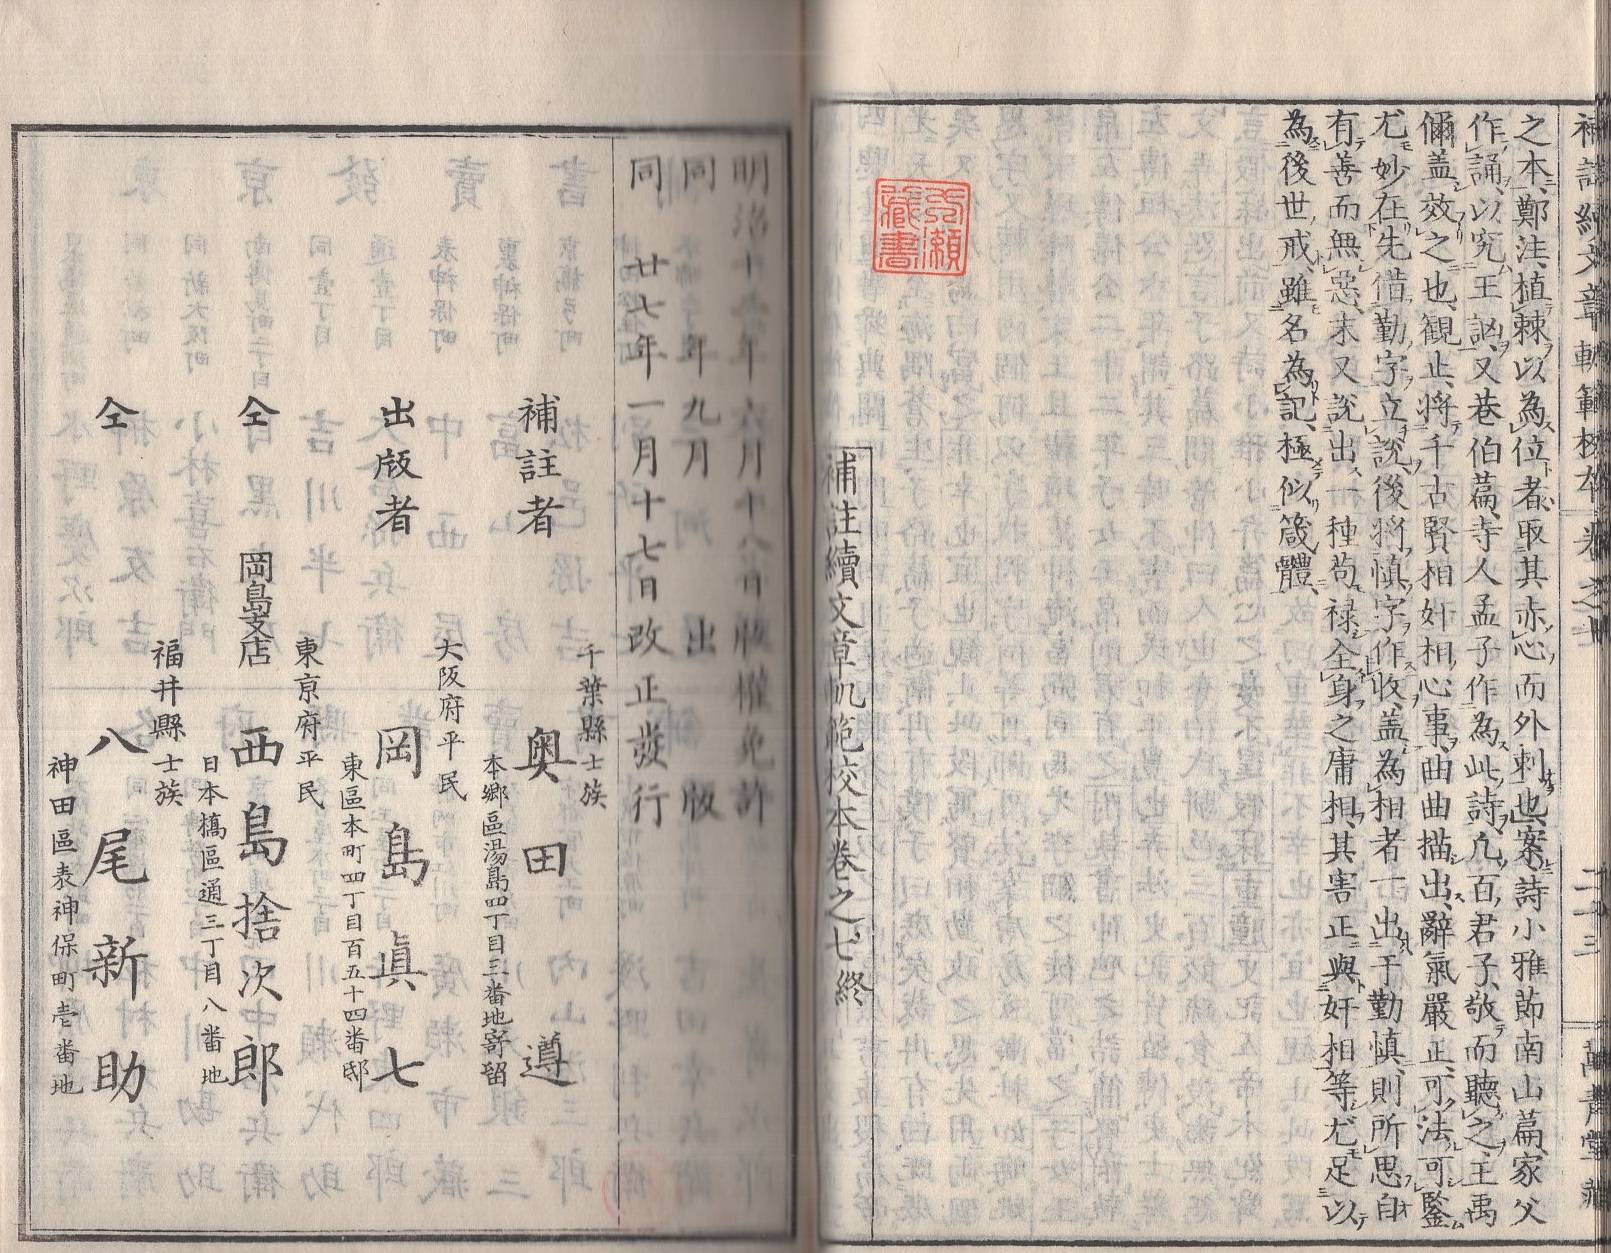 補註續文章軌範校本卷之七 二十三 萬青堂藏
之本、鄭注、植棘以為位者、取其赤心而外刺也、案詩小雅節南山篇、家父
作誦、以究王訩、又巷伯篇、寺人孟子作為此詩、凡百君子、敬而聽之、王禹
偁盖效之也、觀止、將千古賢相奸相心事、曲曲描出、辭氣嚴正、可法可鑒、
尤妙在先借勤字立說、後將慎字作收、盖為相者一出于勤慎、則所思自
有善而無惡、末又說出一種苟禄全身之庸相、其害正與奸相等、尤足以
為後世戒、雖名為記、極似箴體、
補註續文章軌範校本卷之七終
明治十年六月十八日版權免許
同年九月出版
同廿七年一月十七日改正發行
千葉縣士族
補註者 奥田遵
本郷區湯島四丁目三番地寄留
大阪府平民
出版者 岡島眞七
東區本町四丁目百五十四番邸
東京府平民
仝 岡島支店 西島捨次郎
日本橋區通三丁目八番地
福井縣士族
仝 八尾新助
神田區表神保町壱番地